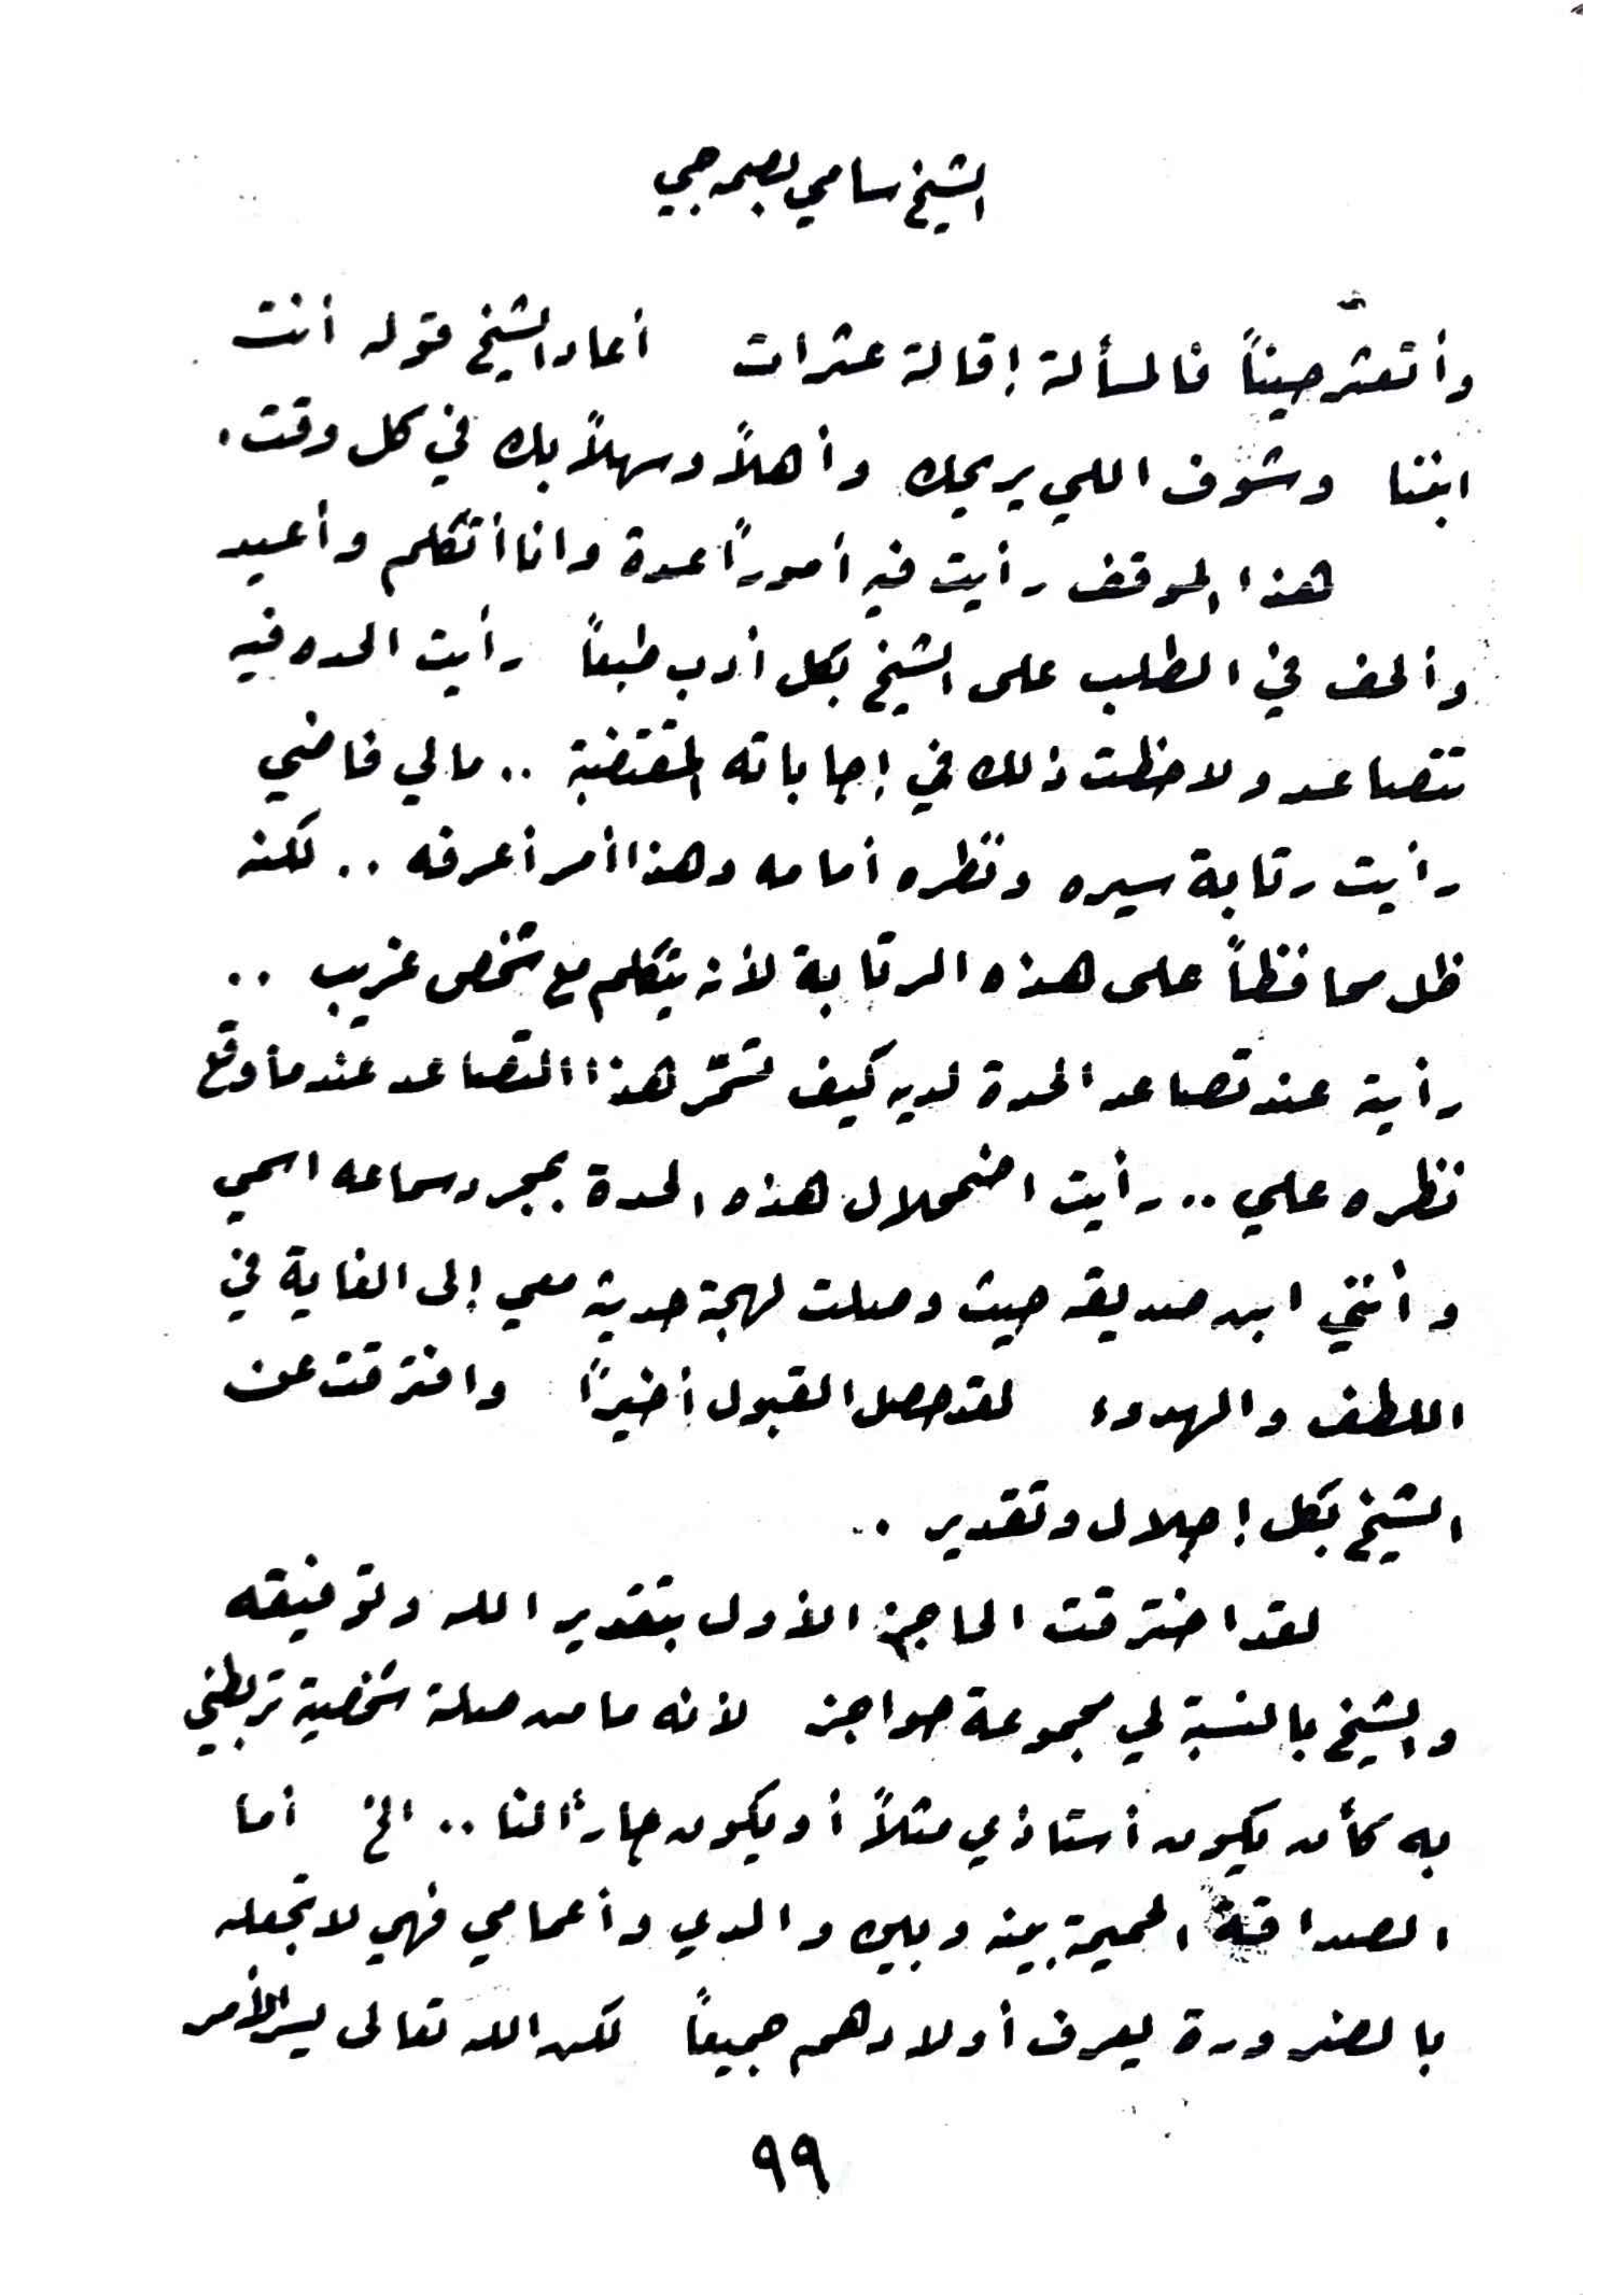 الشيخ سامي بصمه جي
وأتعثّر حيناً فالمسألة إقالة عثرات أعاد الشيخ قوله أنت
ابننا وشوف اللي يريحك وأهلاً وسهلاً بك في كل وقت.
هذا الموقف رأيت فيه أموراً عدة وانا أتكلم وأعيد
وألحف في الطلب على الشيخ بكل أدب طبعاً رأيت الحده فيه
تتصاعد ولاحظت ذلك في إجاباته المقتضبة .. مالي فاضي
رأيت رتابة سيره ونظره أمامه وهذا أمر أعرفه .. لكنه
ظل محافظاً على هذه الرتابة لأنه يتكلم مع شخص غريب ..
رأيته عند تصاعد الحدة لديه كيف تسمّر هذا التصاعد عندما وقع
نظره علي .. رأيت اضمحلال هذه الحدة بمجرد سماعه اسمي
وأنني ابن صديقه حيث وصلت لهجة حديثه معي إلى الغاية في
اللطف والهدوء لقد حصل القبول أخيراً وافترقت عن
الشيخ بكل إجلال وتقدير ..
لقد اخترقت الحاجز الأول بتقدير الله وتوفيقه
والشيخ بالنسبة لي مجموعة حواجز لأنه ما من صلة شخصية تربطني
به كأن يكون أستاذي مثلاً أو يكون جاراً لنا .. الخ أما
الصداقة الحميمة بينه وبين والدي وأعمامي فهي لا تجعله
بالضرورة يعرف أولادهم جميعاً لكن الله تعالى يسر الأمر
٩٩